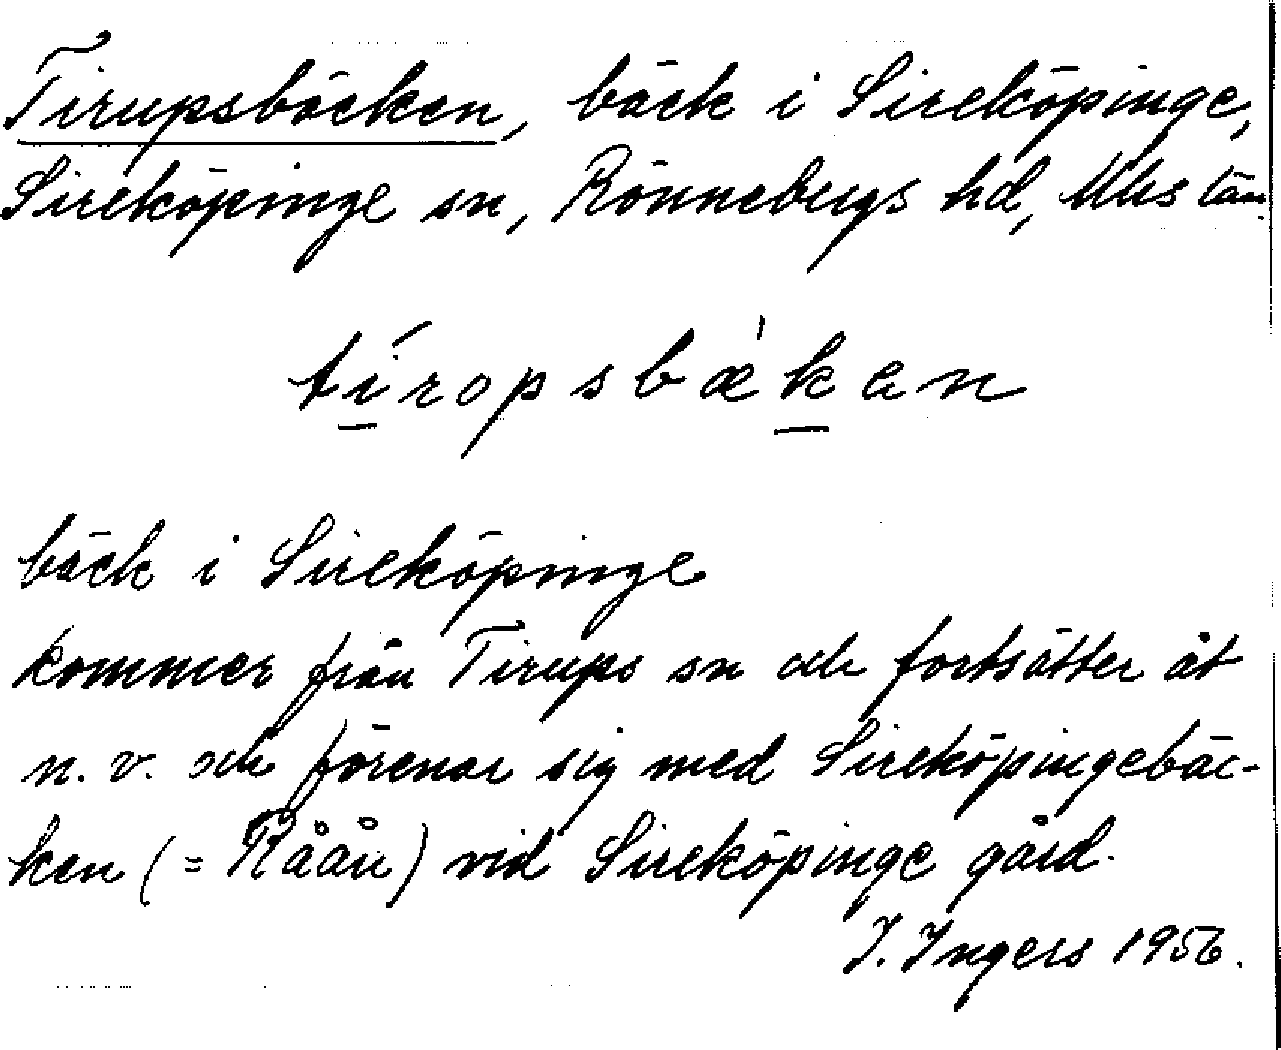 Tirupsbäcken, bäck i Sireköpinge,
Sireköpinge sn, Rönnebergs hd, Mhs län.
tíropsbæ̀ken
bäck i Sireköpinge
kommer från Tirups sn och fortsätter åt
n. v. och förenar sig med Sireköpingebäc-
ken (= Råån) vid Sireköpinge gård.
I. Ingers 1956.